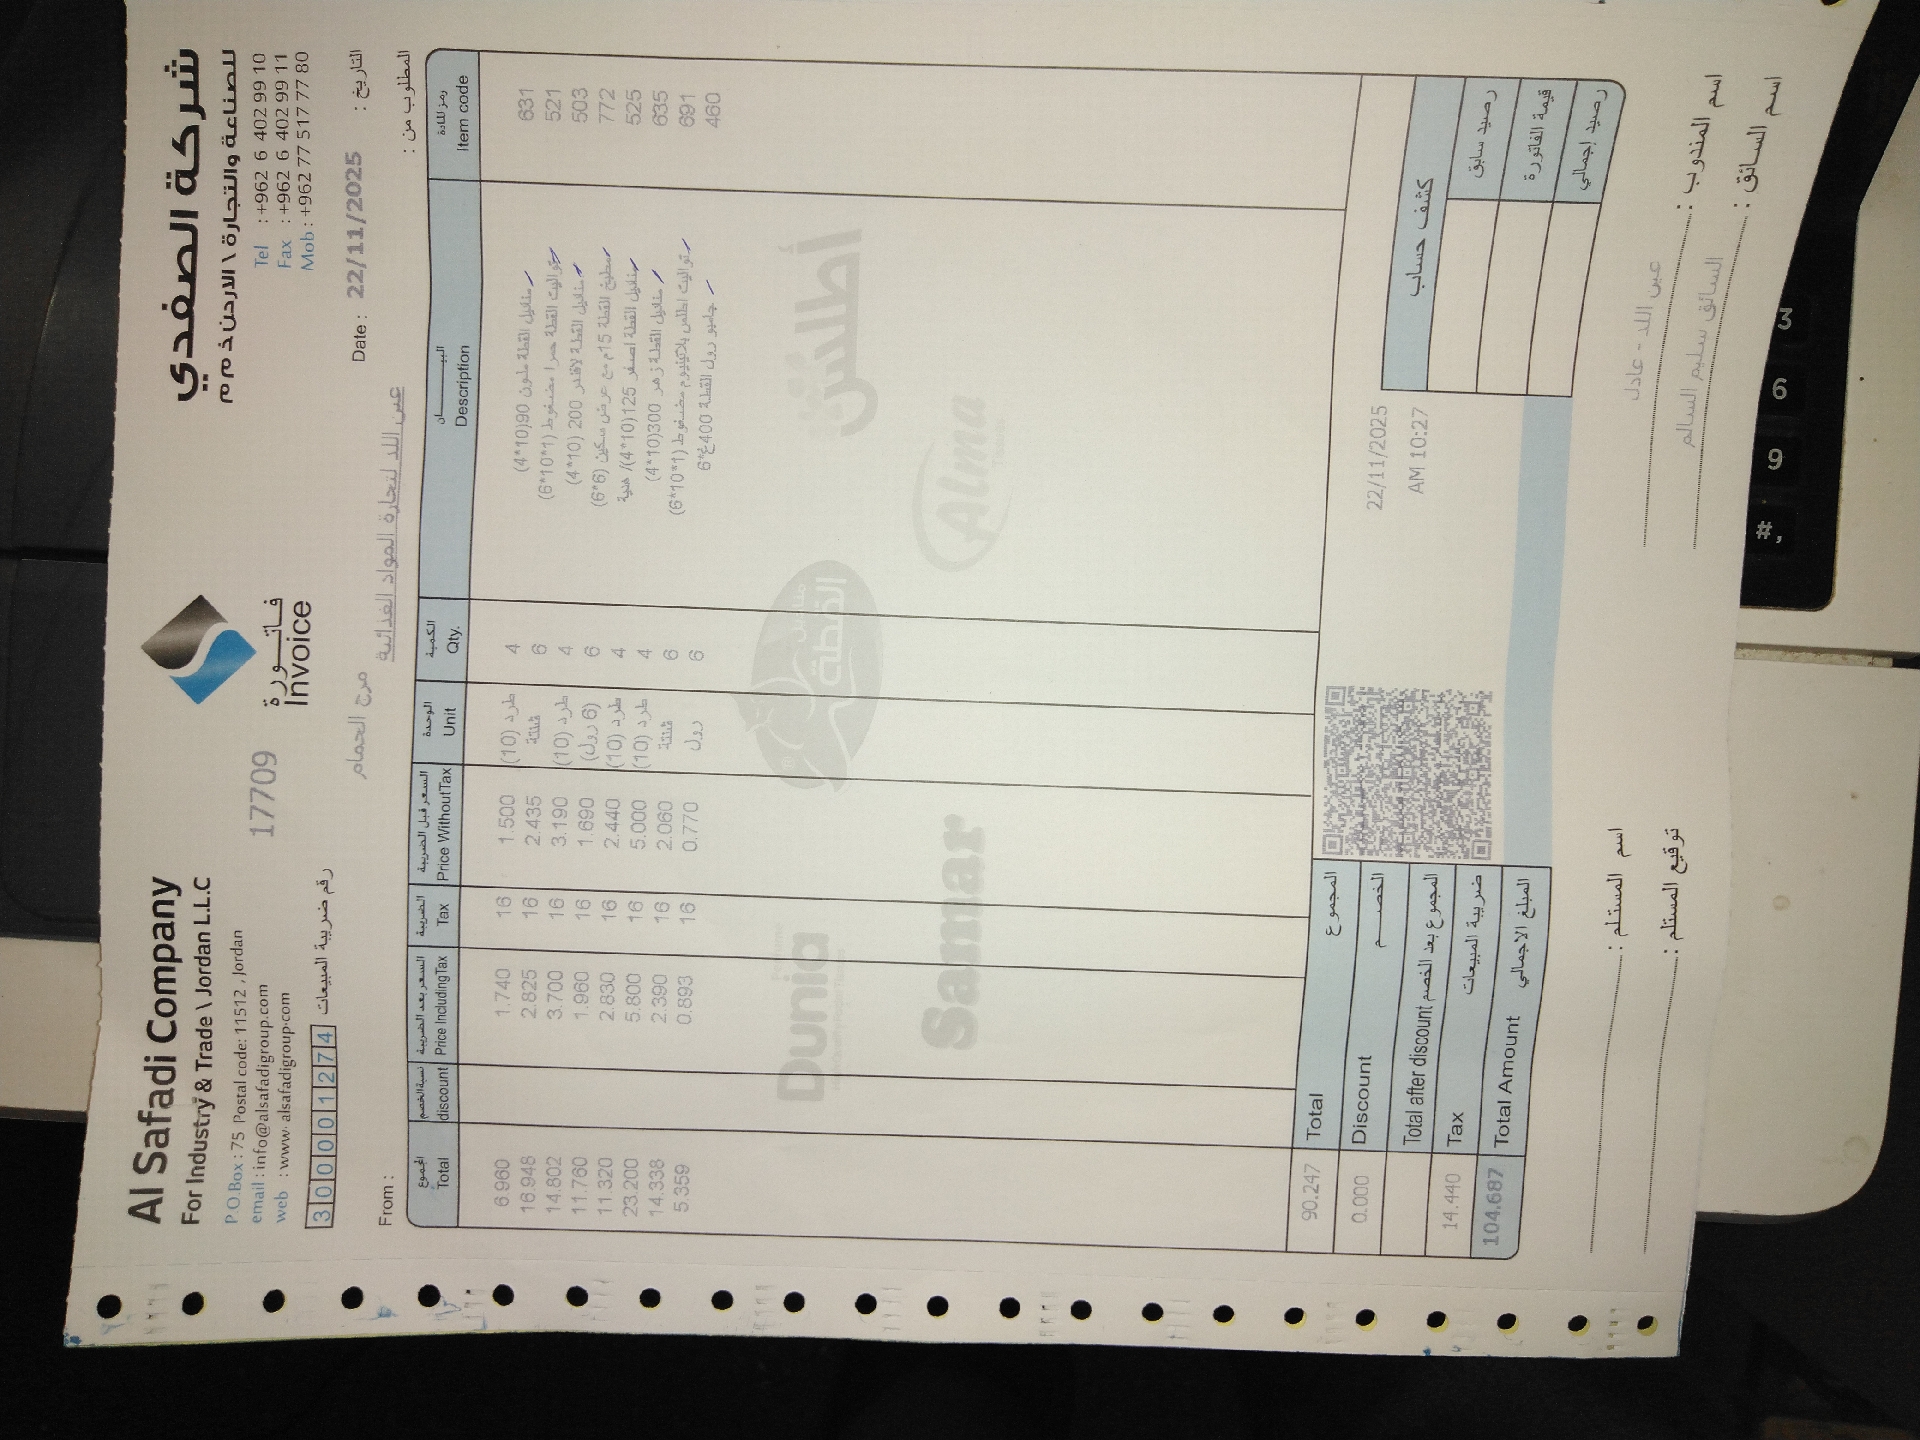 Al Safadi Company
For Industry & Trade \ Jordan L.L.C
P.O.Box : 75 Postal code: 11512 , Jordan
email : info@alsafadigroup.com
web : www. alsafadigroup.com
300001274 رقم ضريبة المبيعات
17709
فاتورة
Invoice
شركة الصفدي
للصناعة والتجارة \ الاردن ذ م م
Tel : +962 6 402 99 10
Fax : +962 6 402 99 11
Mob : +962 77 517 77 80
Date : 22/11/2025 التاريخ :
مرج الحمام
From : عين اللد لتجارة المواد الغذائية المطلوب من :
المجموع نسبة الخصم السعر بعد الضريبة الضريبة السعر قبل الضريبة الوحدة الكمية البيـــــان رمز المادة
Total discount Price Including Tax Tax Price Without Tax Unit Qty. Description Item code
6.960 1.740 16 1.500 طرد (10) 4 مناديل القطة ملون 90(10*4) 631
16.948 2.825 16 2.435 شنتة 6 تواليت القطة حمرا مضغوط (1*10*6) 521
14.802 3.700 16 3.190 طرد (10) 4 مناديل القطة لافندر 200 (10*4) 503
11.760 1.960 16 1.690 (6 رول) 6 مطبخ القطة 15م مع عرض سكين (6*6) 772
11.320 2.830 16 2.440 طرد (10) 4 مناديل القطة اصفر 125(10*4)/ هدية 525
23.200 5.800 16 5.000 طرد (10) 4 مناديل القطة زهر 300(10*4) 635
14.338 2.390 16 2.060 شنتة 6 تواليت اطلس بلاتينيوم مضغوط (1*10*6) 691
5.359 0.893 16 0.770 رول 6 جامبو رول القطة 400غ*6 460
Dunia
Samar
القطة
أطلس
Alma
90.247 Total المجموع
0.000 Discount الخصـــم
Total after discount المجموع بعد الخصم
14.440 Tax ضريبة المبيعات
104.687 Total Amount المبلغ الاجمالي
22/11/2025
AM 10:27
كشف حساب
رصيد سابق
قيمة الفاتورة
رصيد إجمالي
اسم المستلم :
توقيع المستلم :
عين اللد - عادل
اسم المندوب :
السائق سليم السالم
اسم السائق :
3
6
9
#,